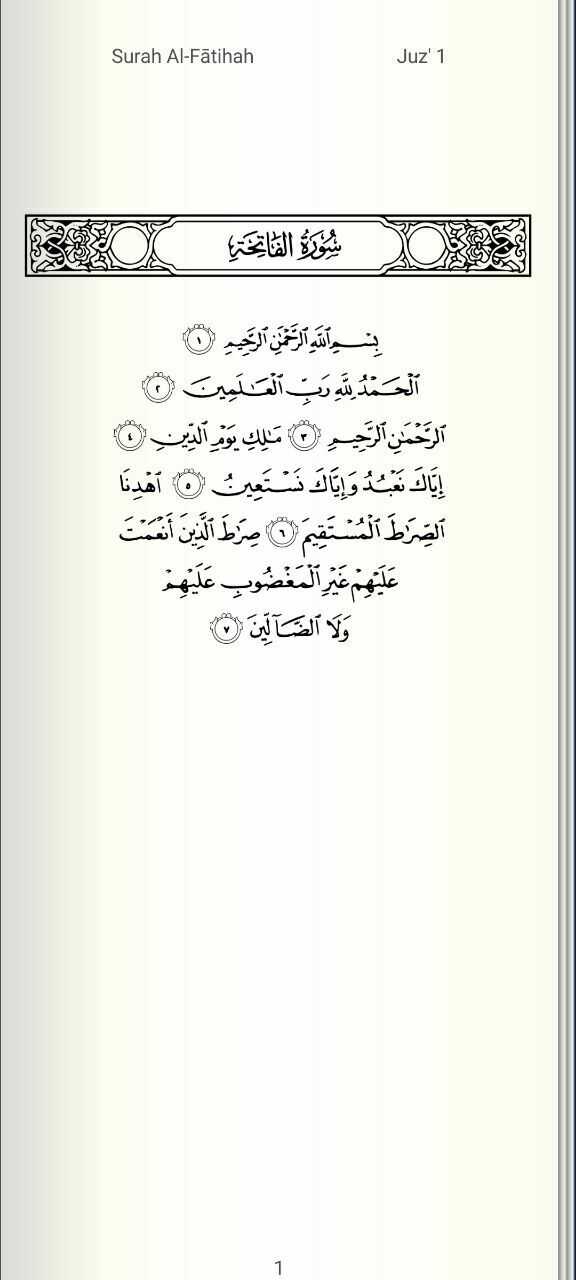 Surah Al-Fātihah Juz' 1
سُورَةُ الفَاتِحَةِ
بِسْمِ ٱللَّهِ ٱلرَّحْمَٰنِ ٱلرَّحِيمِ ١
ٱلْحَمْدُ لِلَّهِ رَبِّ ٱلْعَٰلَمِينَ ٢
ٱلرَّحْمَٰنِ ٱلرَّحِيمِ ٣ مَٰلِكِ يَوْمِ ٱلدِّينِ ٤
إِيَّاكَ نَعْبُدُ وَإِيَّاكَ نَسْتَعِينُ ٥ ٱهْدِنَا
ٱلصِّرَٰطَ ٱلْمُسْتَقِيمَ ٦ صِرَٰطَ ٱلَّذِينَ أَنْعَمْتَ
عَلَيْهِمْ غَيْرِ ٱلْمَغْضُوبِ عَلَيْهِمْ
وَلَا ٱلضَّآلِّينَ ٧
1